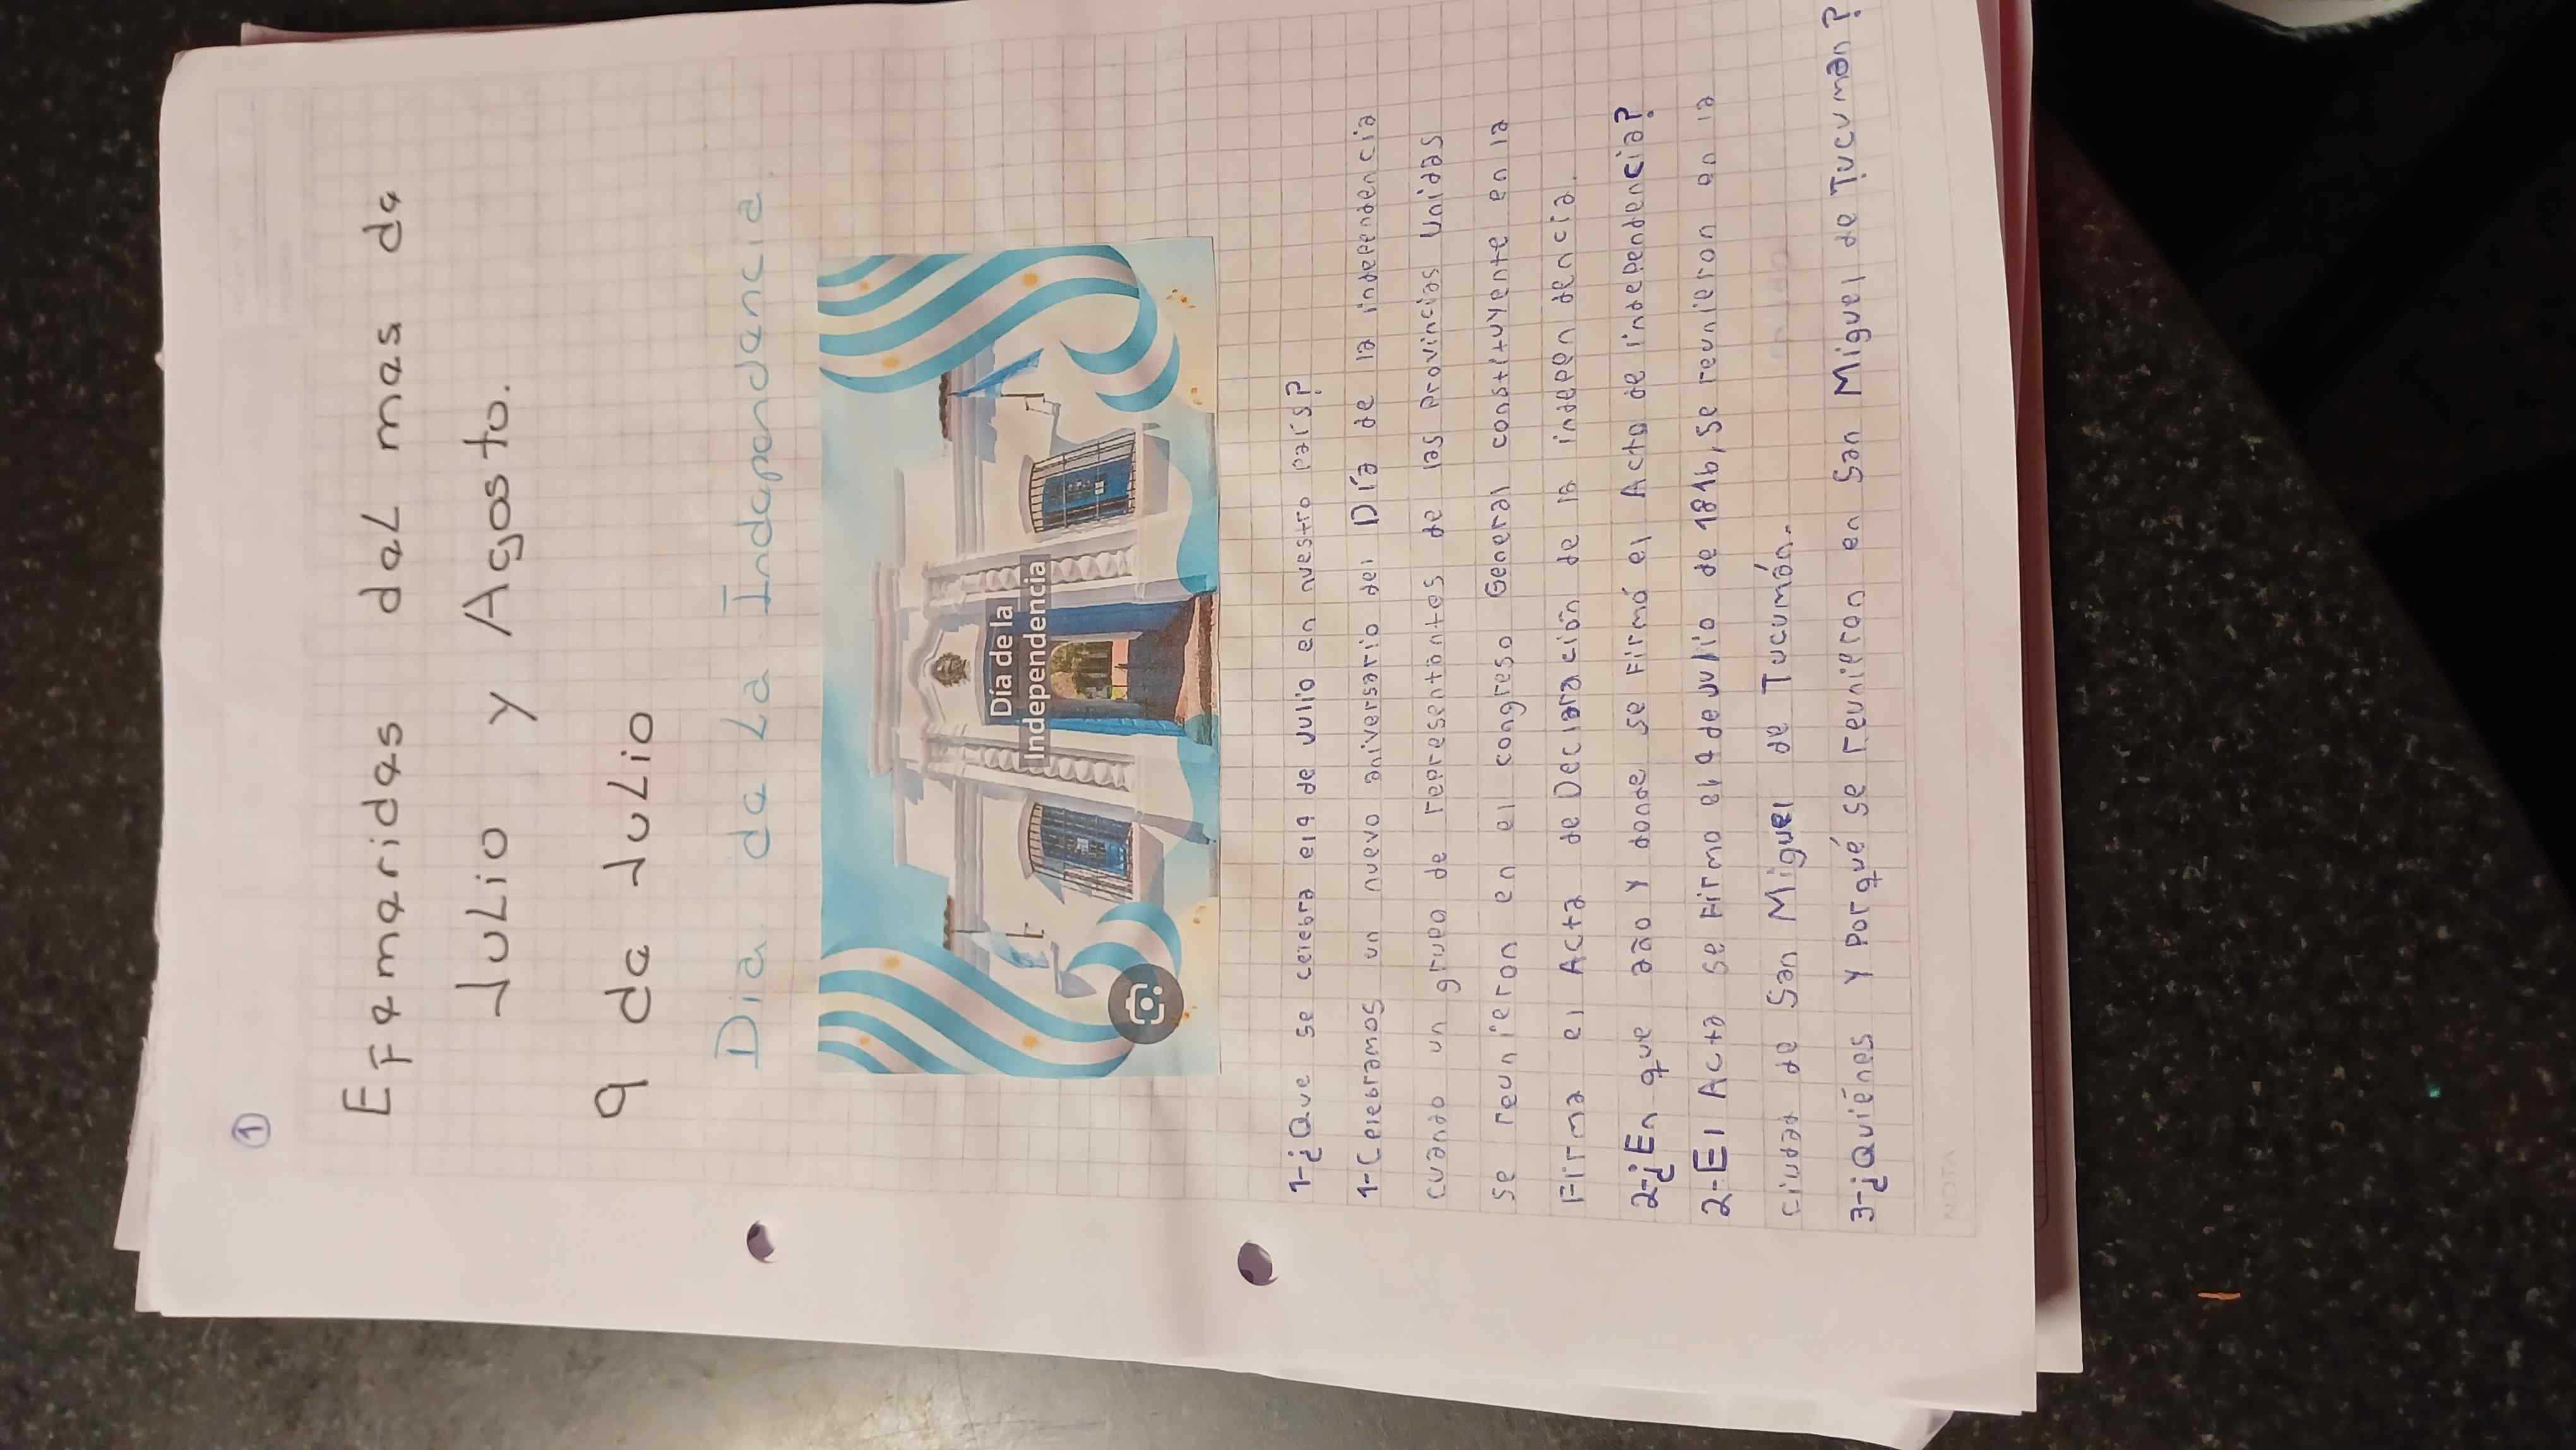 ①
Efemerides del mes de
Julio y Agosto.
9 de Julio
Dia de La Independencia
Día de la
Independencia
1-¿Que se celebra el 9 de Julio en nuestro país?
1-Celebramos un nuevo aniversario del Día de la independencia
cuando un grupo de representantes de las provincias Unidas
se reunieron en el congreso General constituyente en la
Firma el Acta de Declaración de la independencia.
2-¿En que año y donde se Firmó el Acta de independencia?
2-El Acta se Firmo el 9 de Julio de 1816, se reunieron en la
ciudad de San Miguel de Tucumán.
3-¿Quiénes y Porqué se reunieron en San Miguel de Tucuman?
NOTA